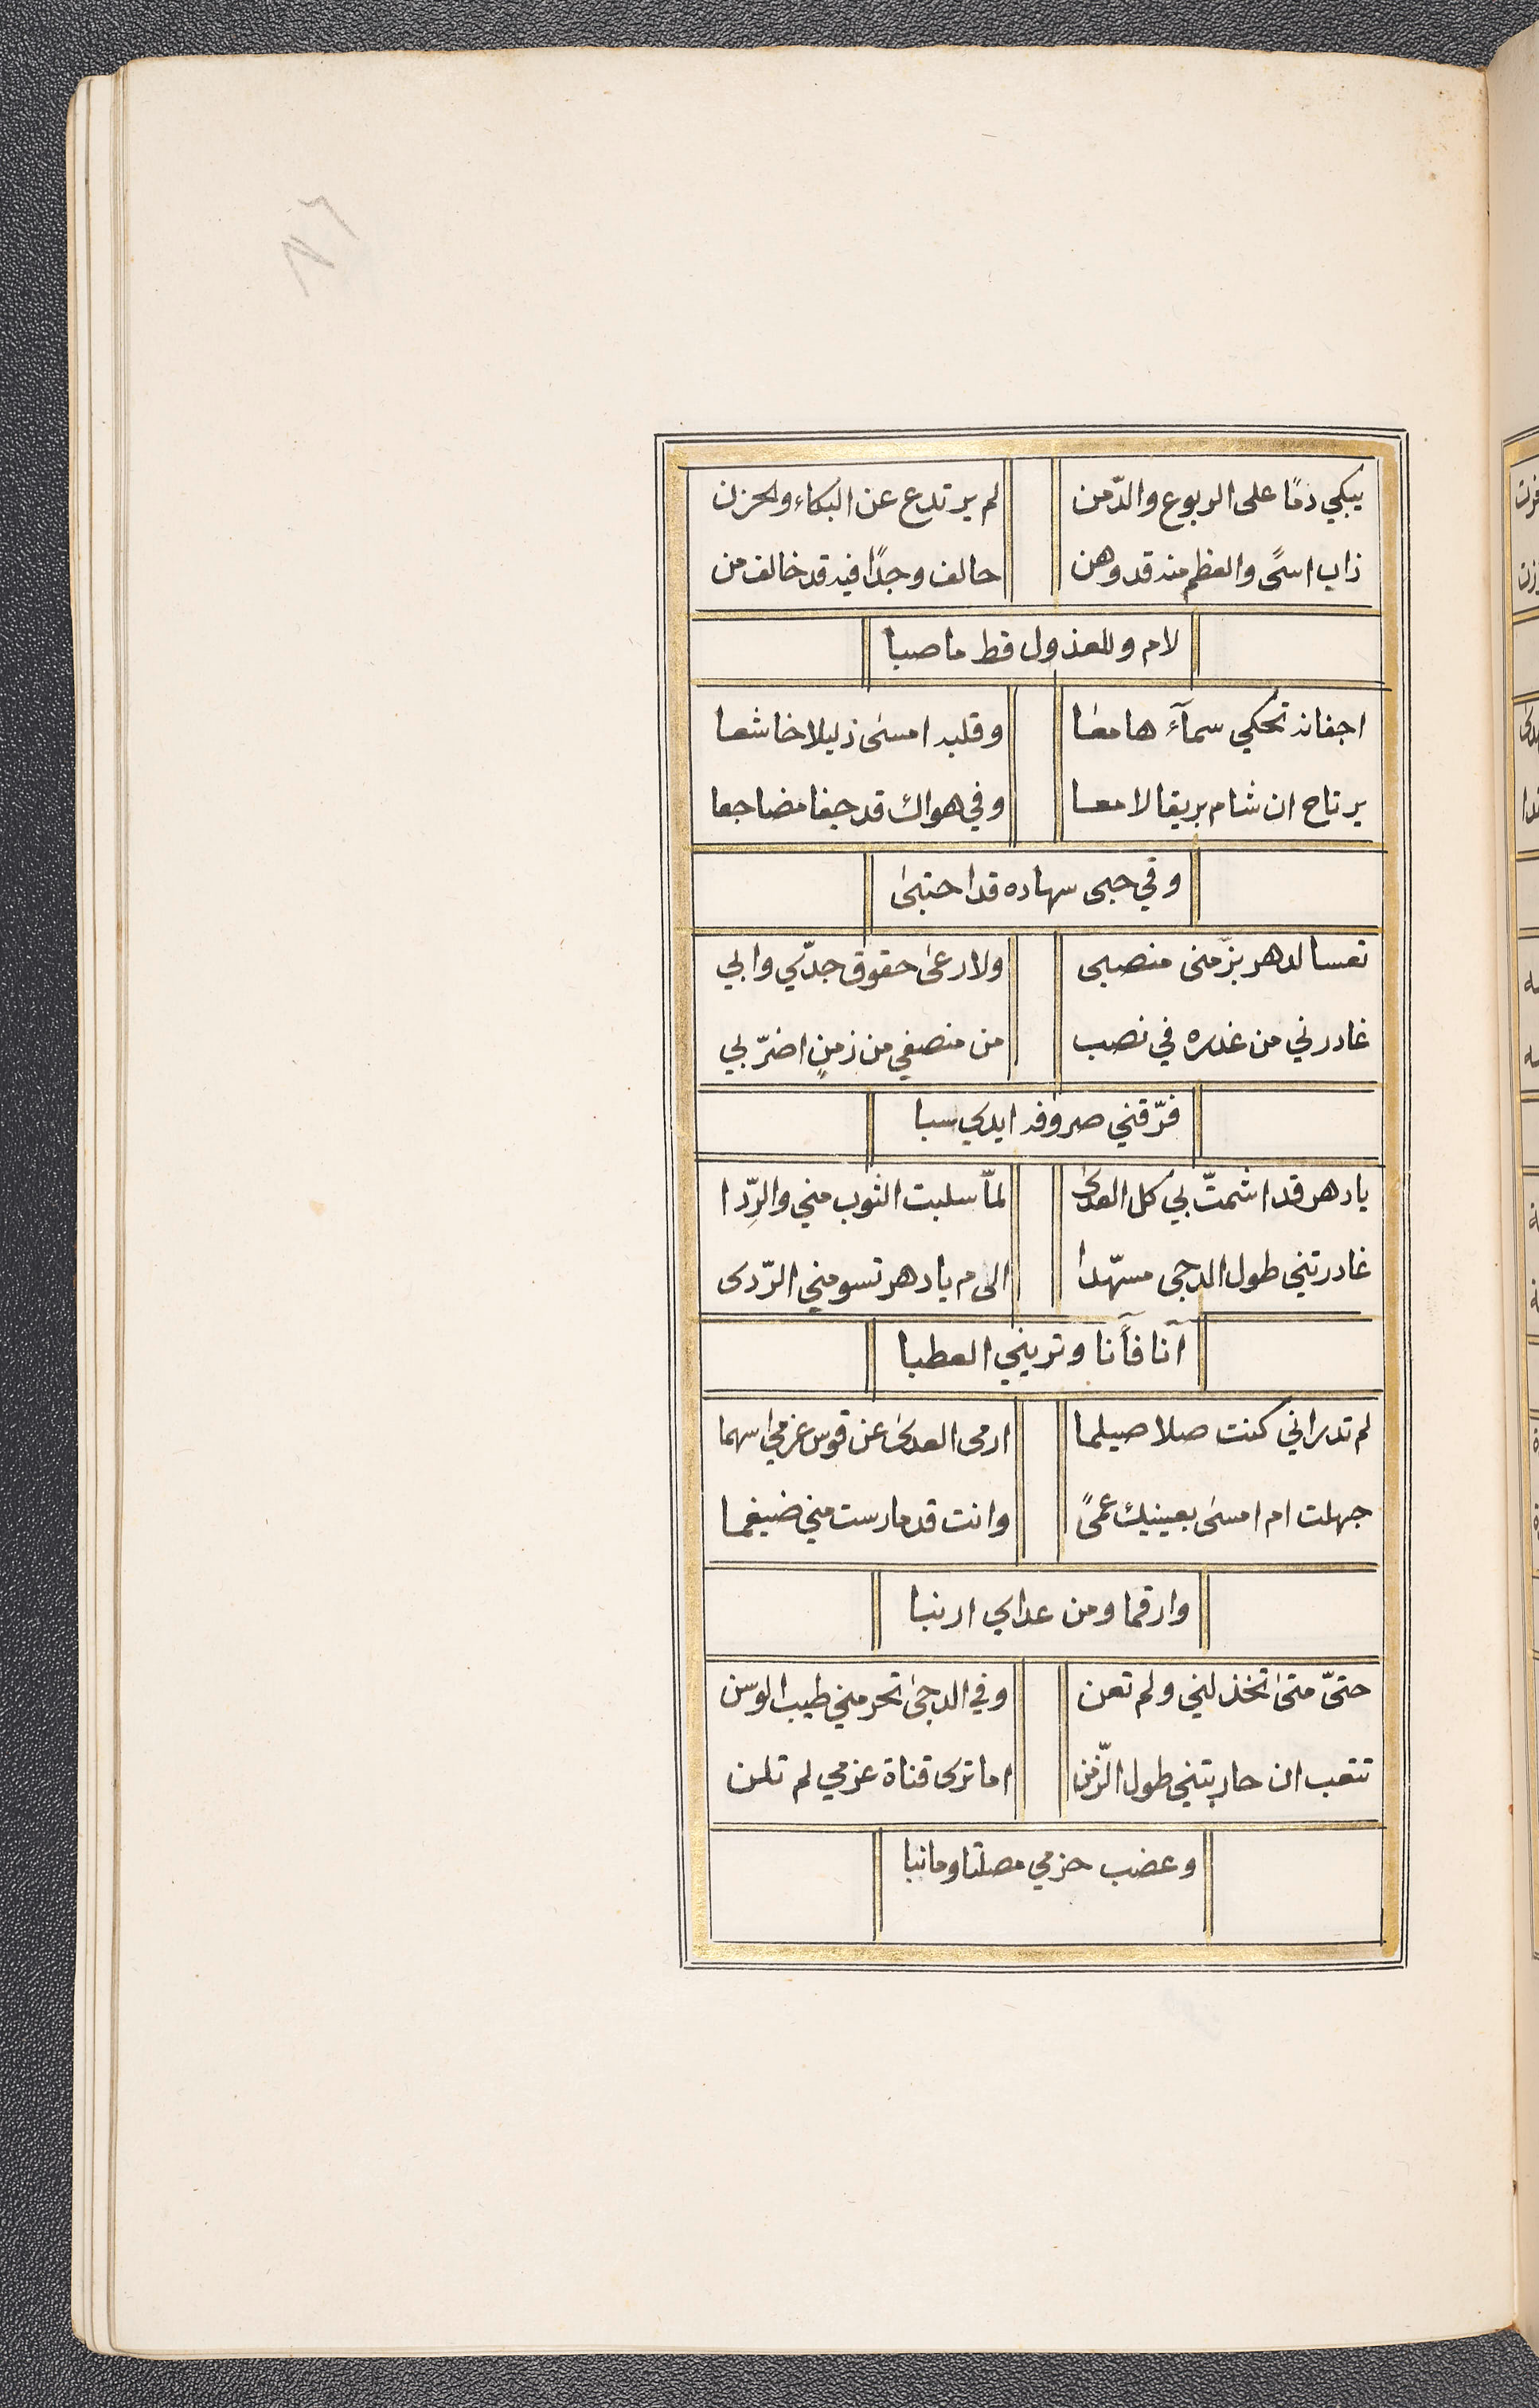 يبكي دمًا على الربوع والدّمن لم يرتدع عن البكاء والحزن
ذاب اسىً والعظم منه قد وهن حالف وجدًا فيه قد خالف من
لام وللعذول قط ما صبا
اجفانه تحكي سمآء هامعا وقلبه امسى ذليلا خاشعا
يرتاح ان شام بريقا لامعا وفي هواك قد جفا مضاجعا
وفي حبى سهاده قد احتبى
تعسا لدهر بزّ منى منصبى ولا رعى حقوق جدّي وابي
غادرني من غدره في نصب من منصفي من زمنٍ اضرّ بي
فرّقني صروفه ايدي سبا
يا دهر قد اشمتّ بي كل العدى لمّا سلبت الثوب مني والرِّدا
غادرتني طول الدجى مسهّدا الى م يا دهر تسومني الرّدى
آنا فآنا وتريني العطبا
لم تدر اني كنت صلا صيلما ارمى العدى عن قوس عزمي اسهما
جهلت ام امسى بعينيك عمىً وانت قد مارست مني ضيغما
وارقما ومن عداي ارنبا
حتىّ متى تخذلني ولم تعن وفي الدجى تحرمني طيب الوسن
تتعب ان حاربتني طول الزّمن اما ترى قناة عزمي لم تلن
وعضب حزمي مصلتا وما نبا